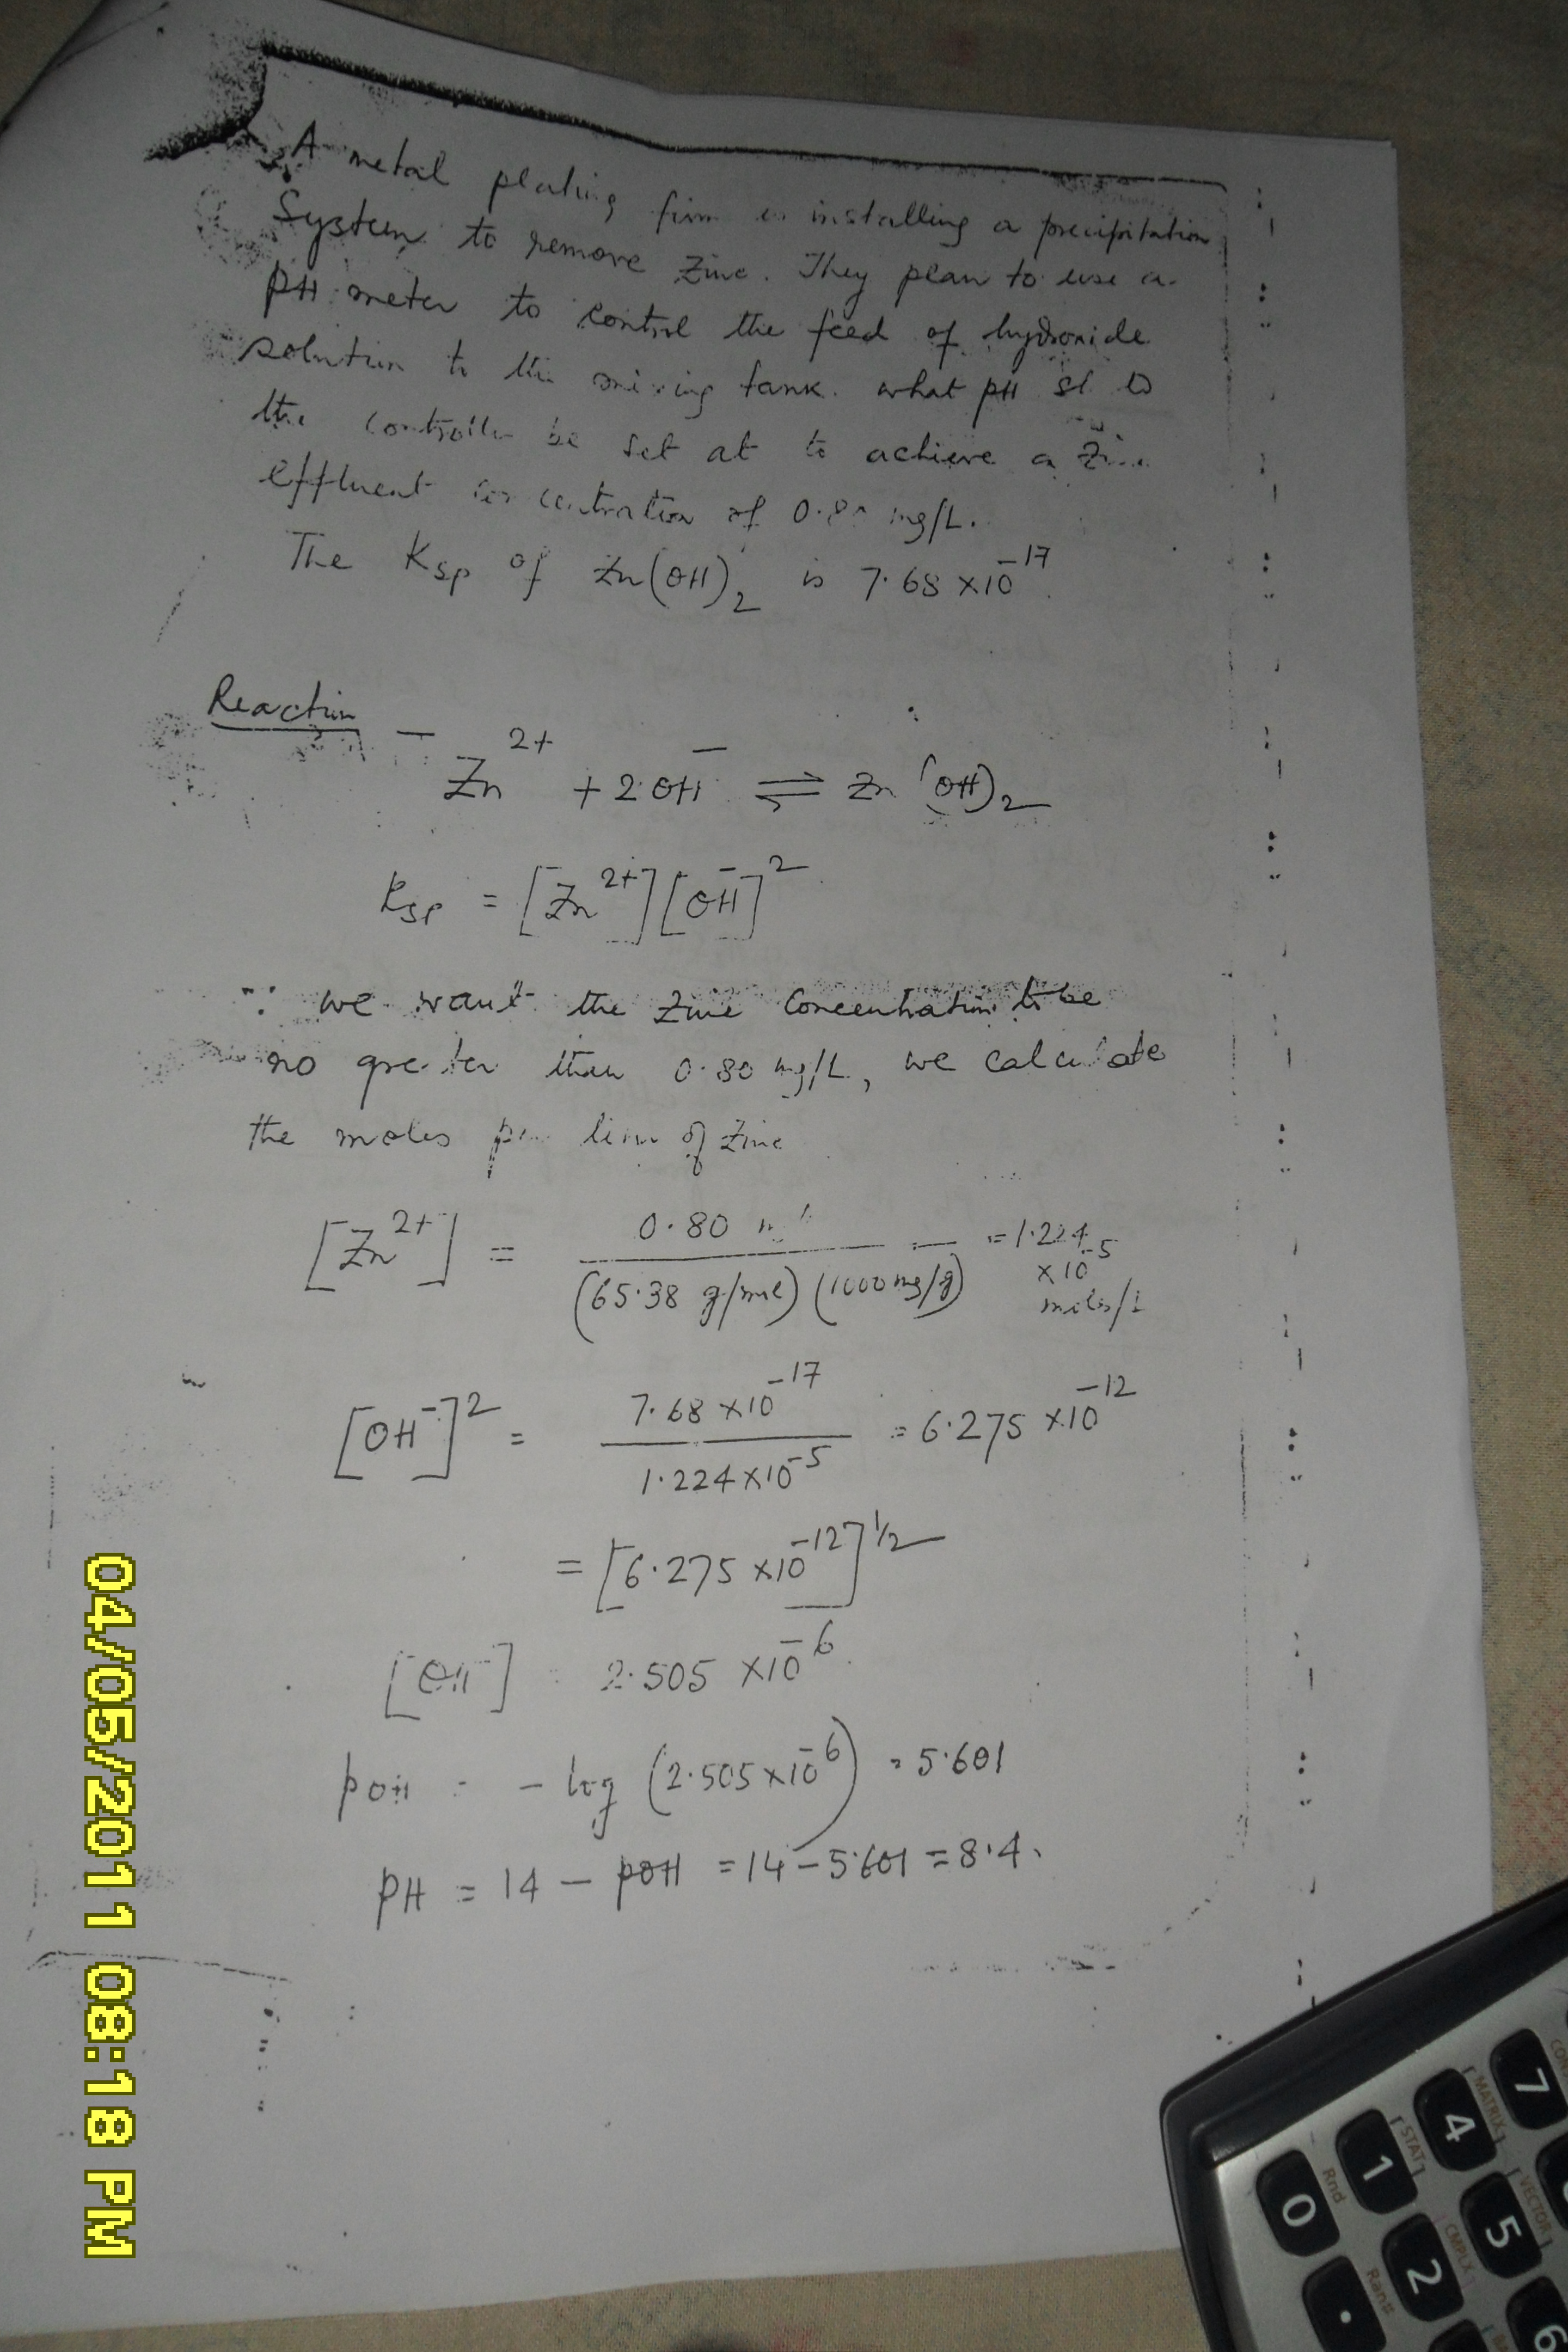 A metal plating firm is installing a precipitation
System to remove Zinc. They plan to use a
PH meter to control the feed of hydroxide
solution to the mixing tank. what pH
the controller be set at to achieve a Zinc
effluent concentration of 0.80 mg/L.
The Ksp of Zn(OH)₂ is 7.68 ×10⁻¹⁷.
Reaction –
Zn²⁺ + 2OH⁻ ⇌ Zn(OH)₂
Ksp = [Zn²⁺][OH⁻]²
∵ we want the Zinc Concentration to be
no greater than 0.80 mg/L, we calculate
the moles per of Zinc
[Zn²⁺] = 0.80 / (65.38 g/mole) (1000 mg/g) = 1.224 ×10⁻⁵ moles/L
[OH⁻]² = 7.68 ×10⁻¹⁷ / 1.224×10⁻⁵ = 6.275 ×10⁻¹²
= [6.275 ×10⁻¹²]^1/2
[OH⁻] = 2.505 ×10⁻⁶.
pOH = - log (2.505×10⁻⁶) = 5.601
PH = 14 – pOH = 14 – 5.601 = 8.4.
04/05/2011 08:18 PM
7
4
1
0
5
2
6
.
MATRIX
STAT
VECTOR
CMPLX
Rnd
Ran#